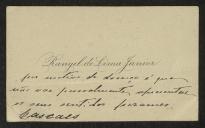 Rangel de Lima Junior
por motivo de doença é que
não vae pessoalmente apresentar
os seus sentidos pezames.
Cascaes